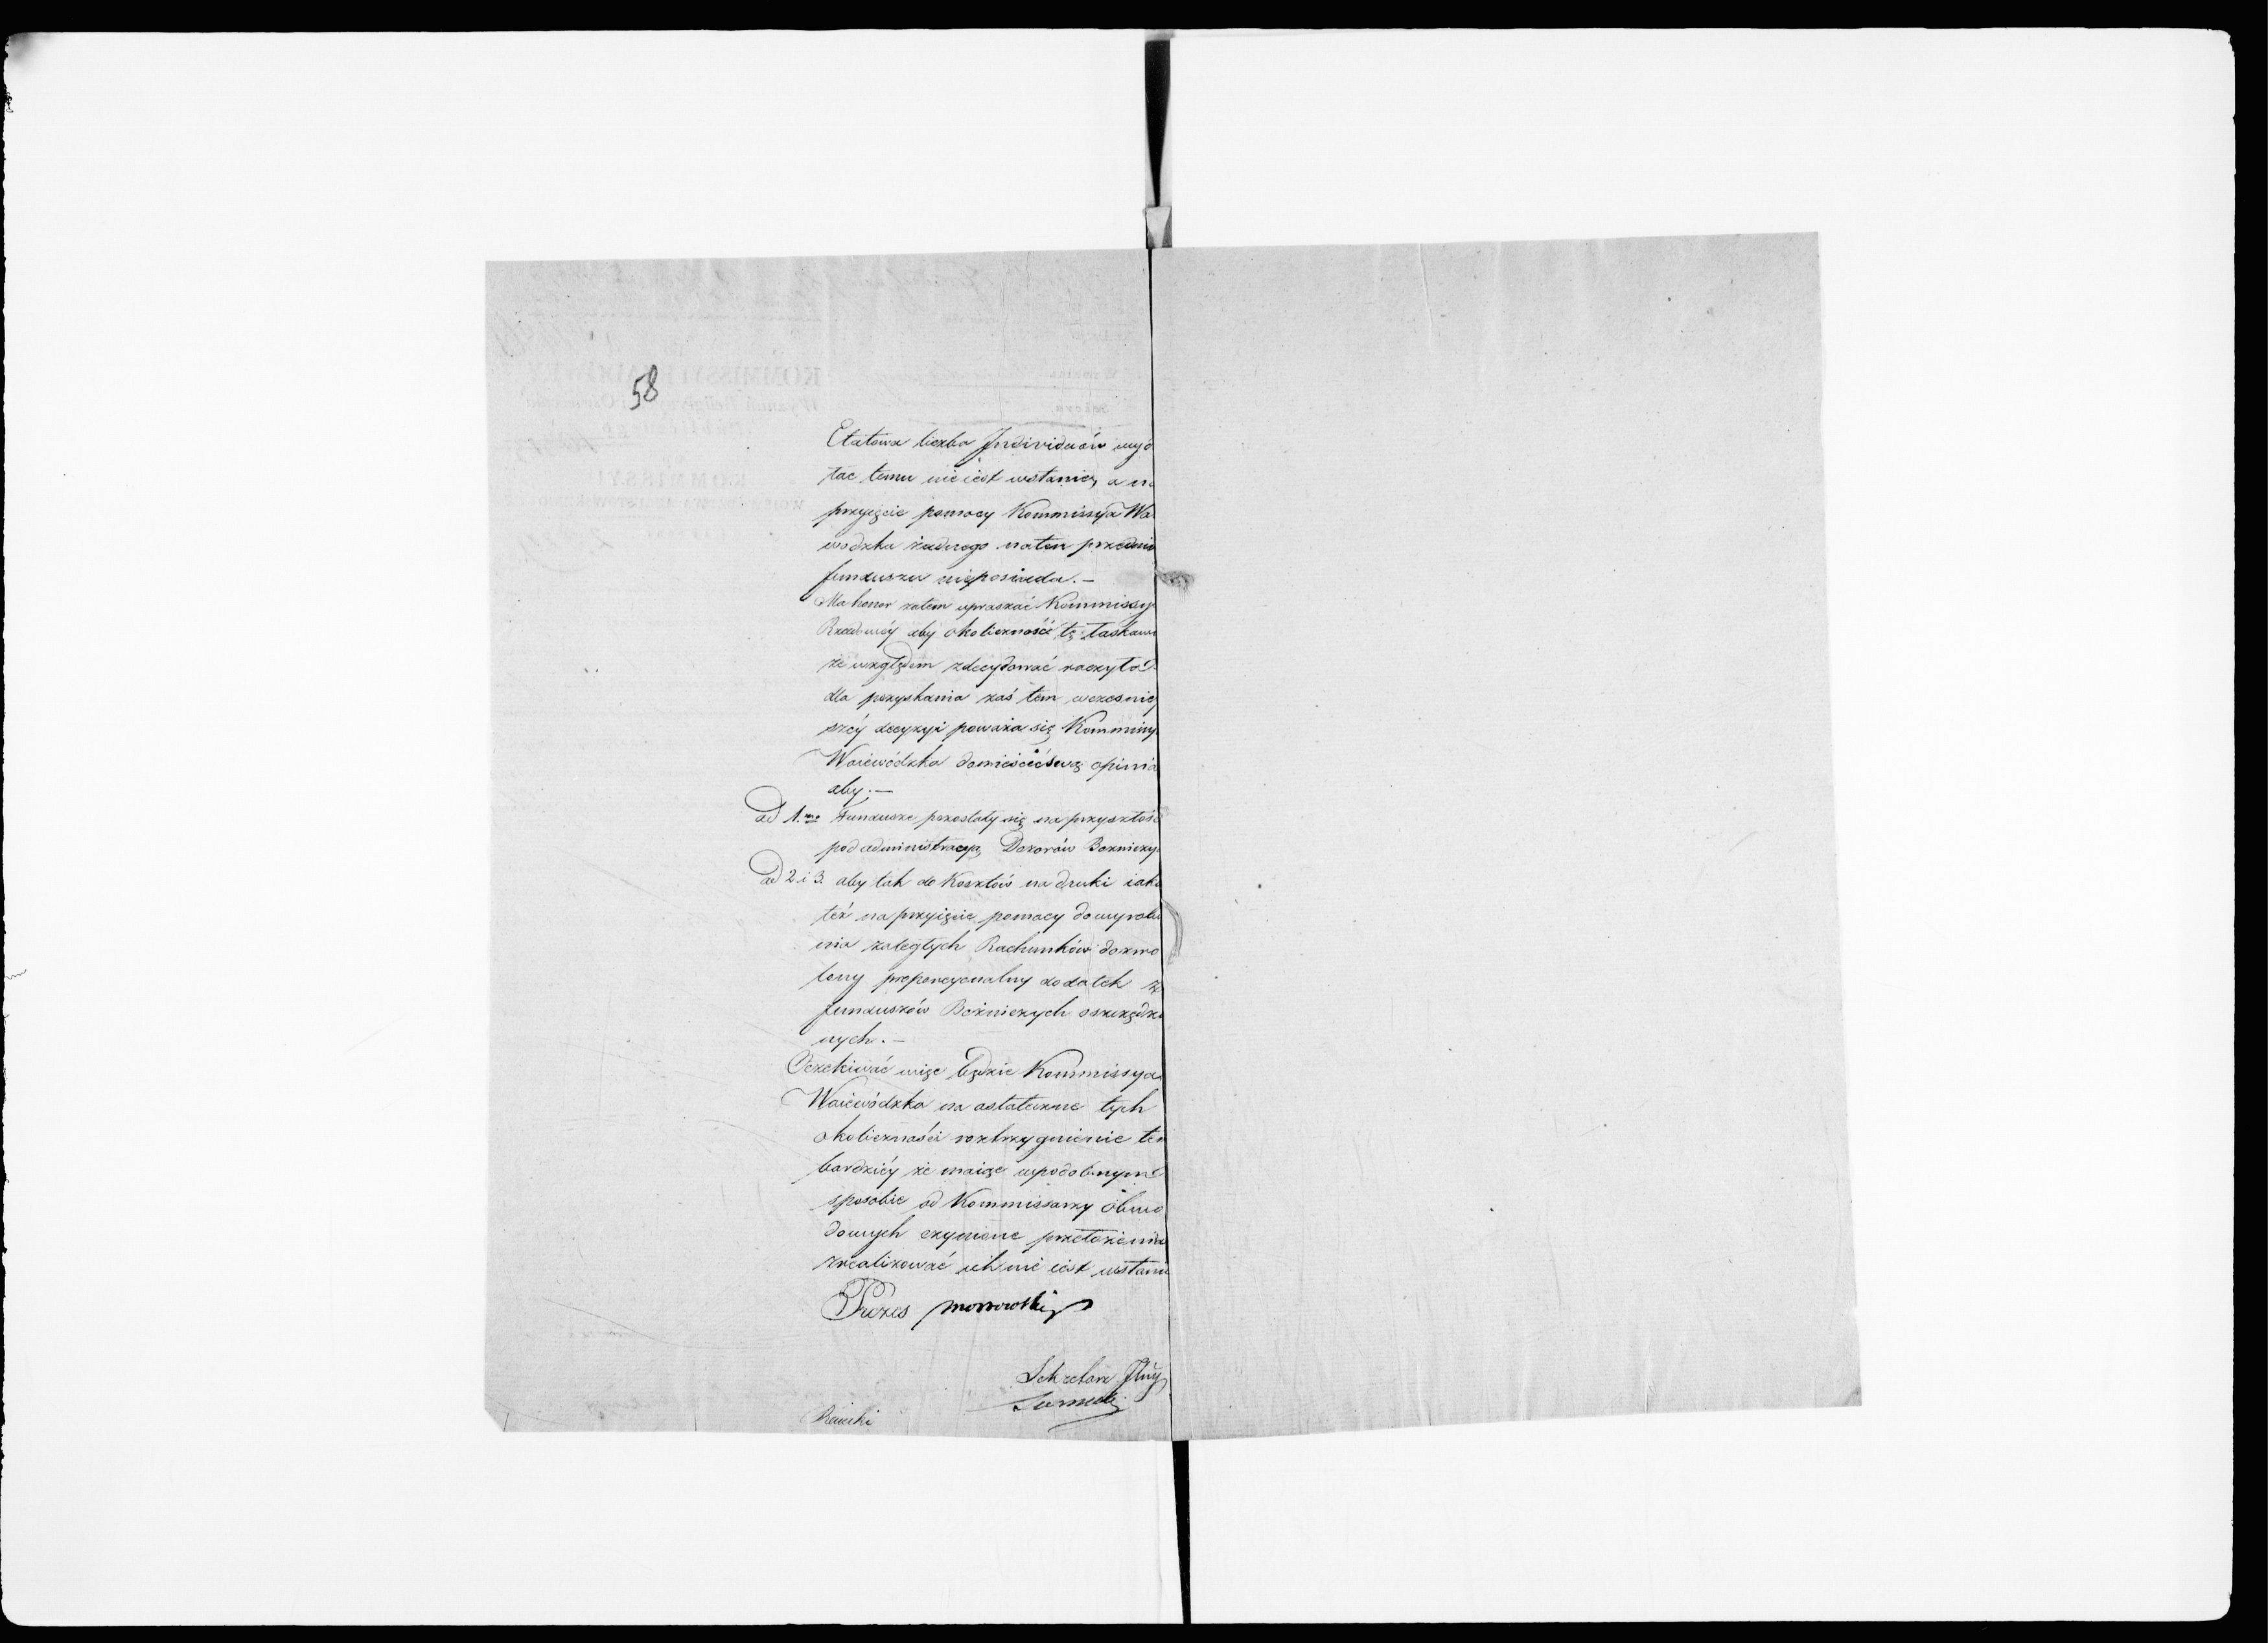 58
Etatowa liczba Individuów wyd
łac temu nie iest wstanie, a na
przyięcie pomocy Kommissya Wo
wodzka żadnego naten przedmio
funduszu nieposiada.—
Ma honor zatem upraszać Kommissy
Rządowéy aby okoliczność tę łaskaw
ze względem zdecydować raczyła
dla pozyskania zaś tem wcześniey
széy decyzyi poważa się Kommissy
Woiewódzka domieścić swą opinią
aby:—
ad 1mo Fundusze pozostały się na przyszłość
pod administracyą Dozorów Bożniczy
ad 2 i 3. aby tak do Kosztów na druki iako
też na przyięcie pomocy do wyrobi
nia zaległych Rachunków dozwo
lony proporcyonalny dodatek z
funduszów Bożniczych oszczędzo
nych.—
Oczekiwać więc będzie Kommissya
Woiewódzka na ostateczne tych
okoliczności rozstrzygnienie tem
bardziéy że maiąc w podobnym
sposobie od Kommissarzy Obwo
dowych czynione przełożenia
zrealizować ich nie iest wstanie
Prezes
Sekretarz Jlny